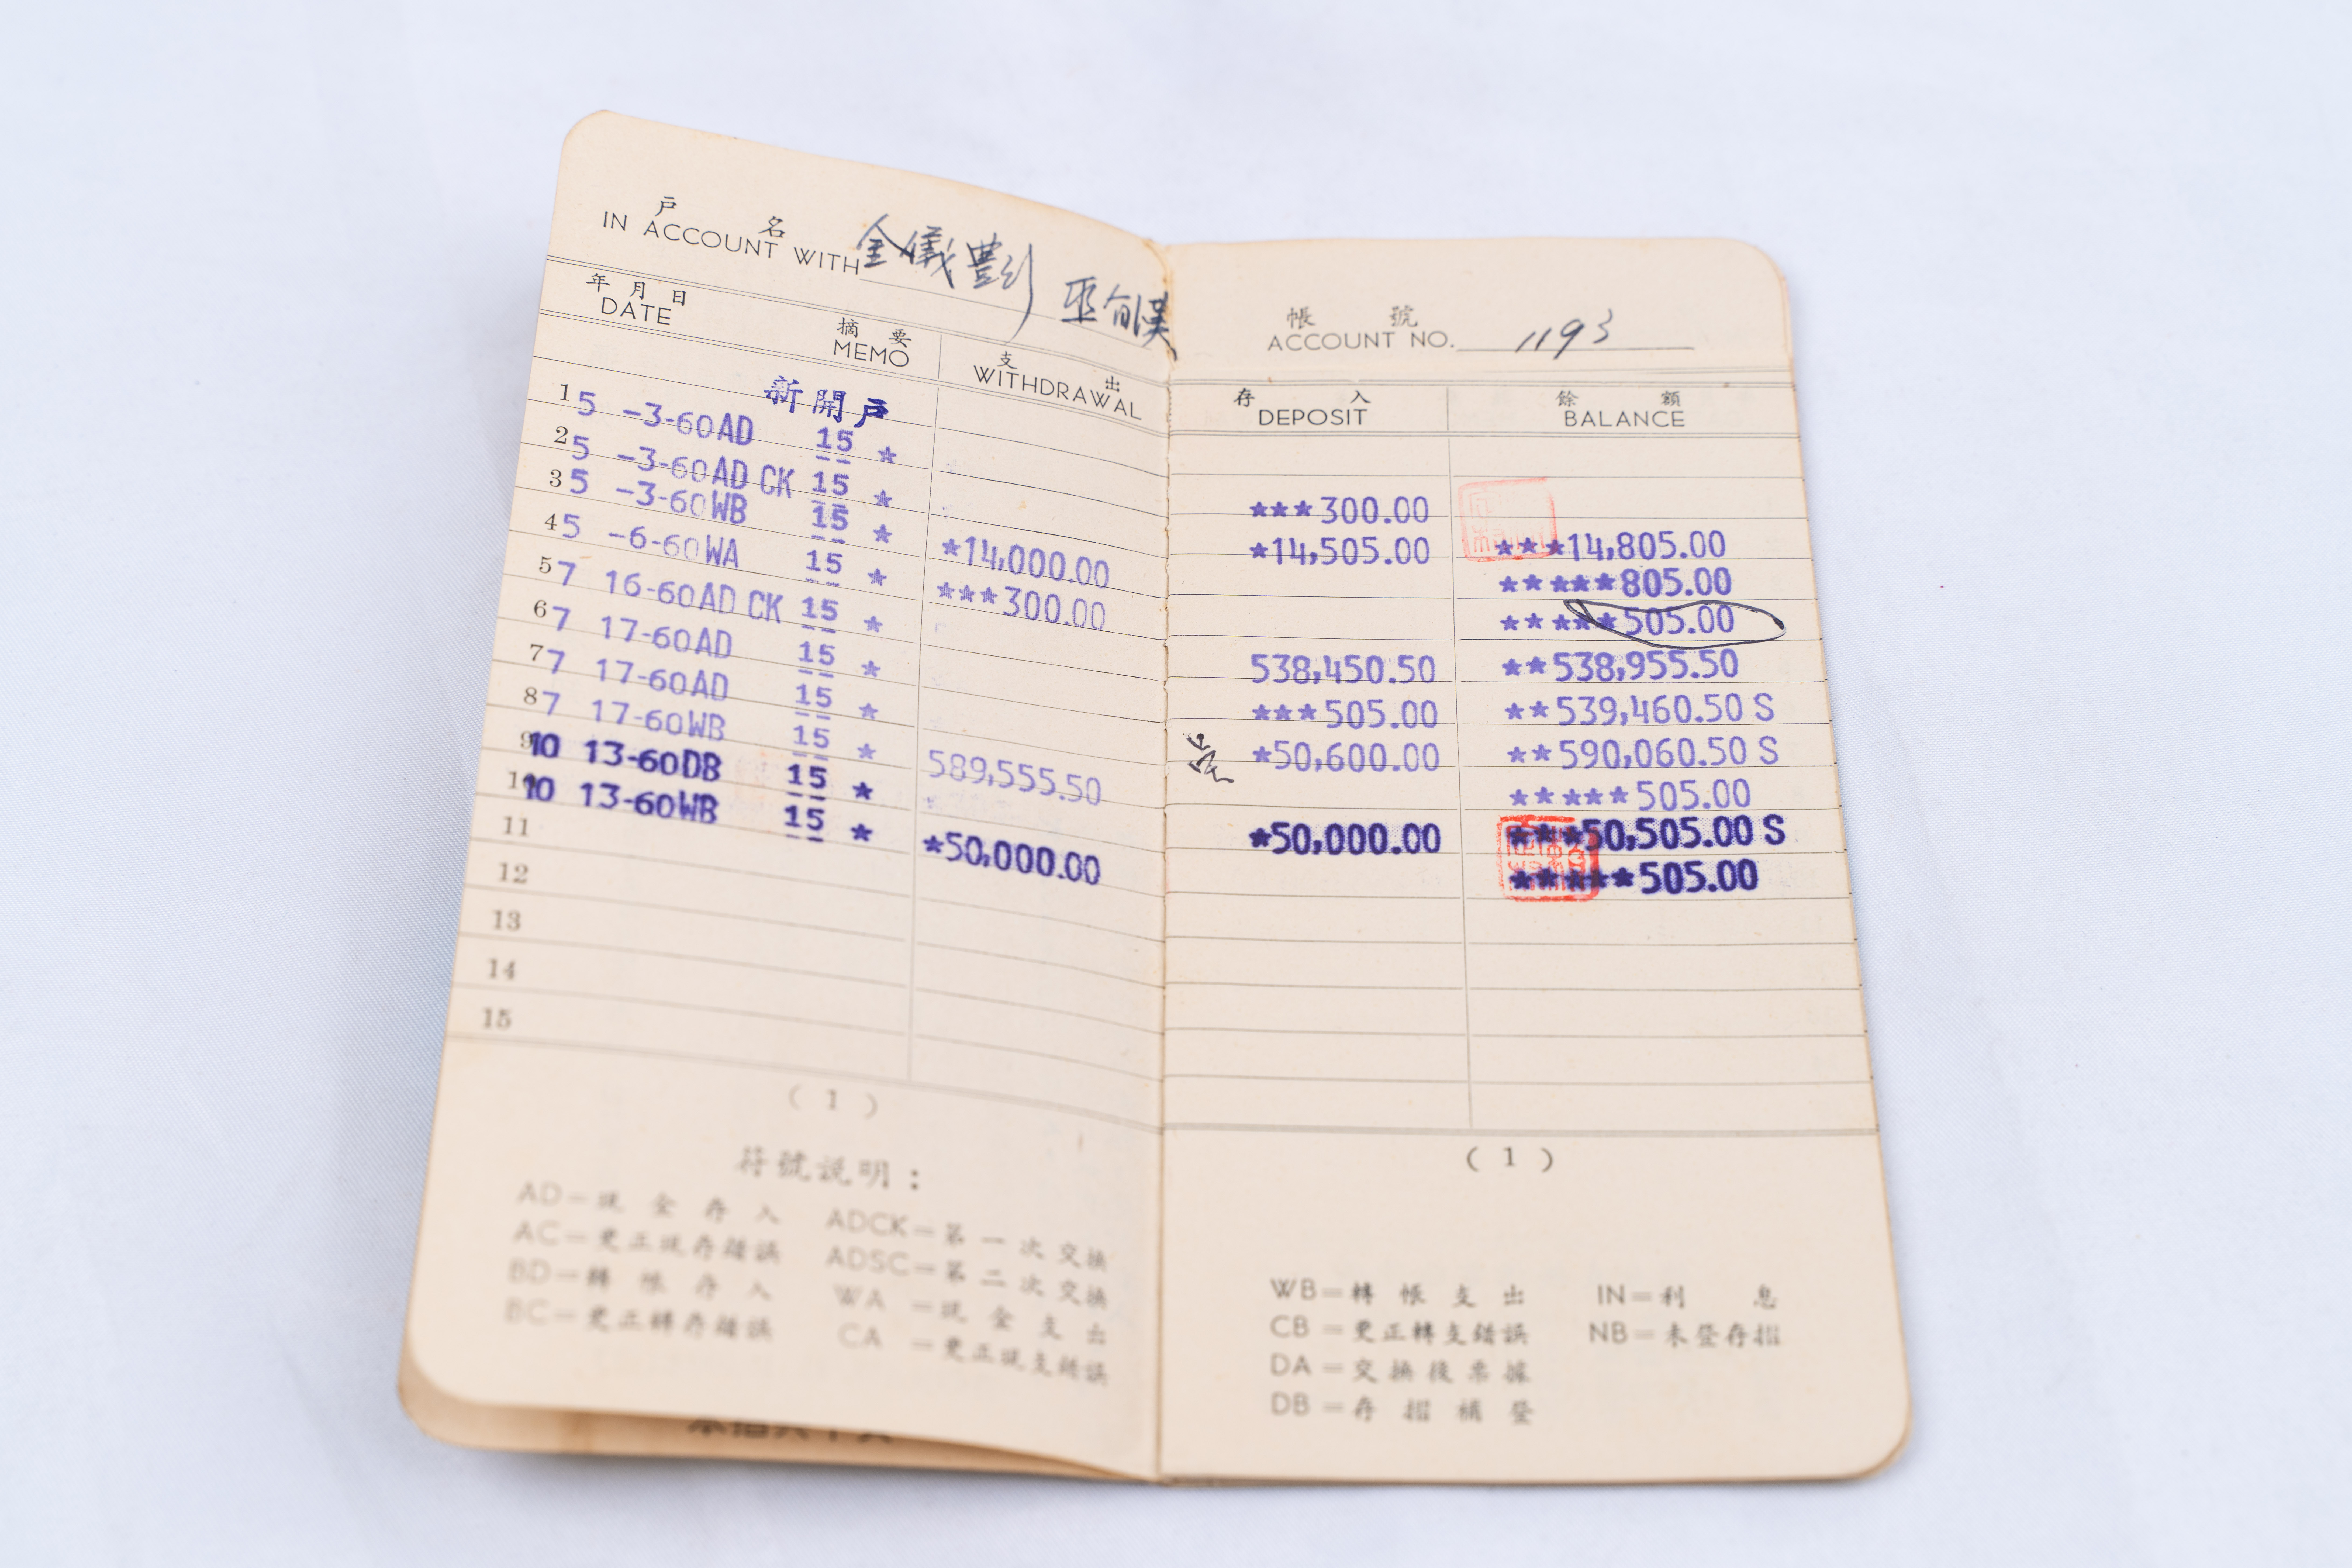 戶 名
IN ACCOUNT WITH 金儀豐
帳 號
ACCOUNT NO. 1193
年 月 日
DATE
摘 要
MEMO
支 出
WITHDRAWAL
存 入
DEPOSIT
餘 額
BALANCE
新開戶
1 5 -3-60AD 15 * ***300.00
2 5 -3-60AD CK 15 * *14,505.00 ***14,805.00
3 5 -3-60WB 15 * *14,000.00 *****805.00
4 5 -6-60WA 15 * ***300.00 *****505.00
5 7 16-60AD CK 15 * 538,450.50 **538,955.50
6 7 17-60AD 15 * ***505.00 **539,460.50 S
7 7 17-60AD 15 * *50,600.00 **590,060.50 S
8 7 17-60WB 15 * 589,555.50 *****505.00
9 10 13-60DB 15 * *50,000.00 ***50,505.00 S
10 10 13-60WB 15 * *50,000.00 *****505.00
11
12
13
14
15
( 1 )
( 1 )
符號說明：
AD－現金存入 ADCK－第一次交換
AC－更正現存錯誤 ADSC－第二次交換
BD－轉帳存入 WA－現金支出
BC－更正轉存錯誤 CA－更正現支錯誤
WB＝轉帳支出 IN＝利息
CB＝更正轉支錯誤 NB＝未登存摺
DA＝交換後票據
DB＝存摺補登